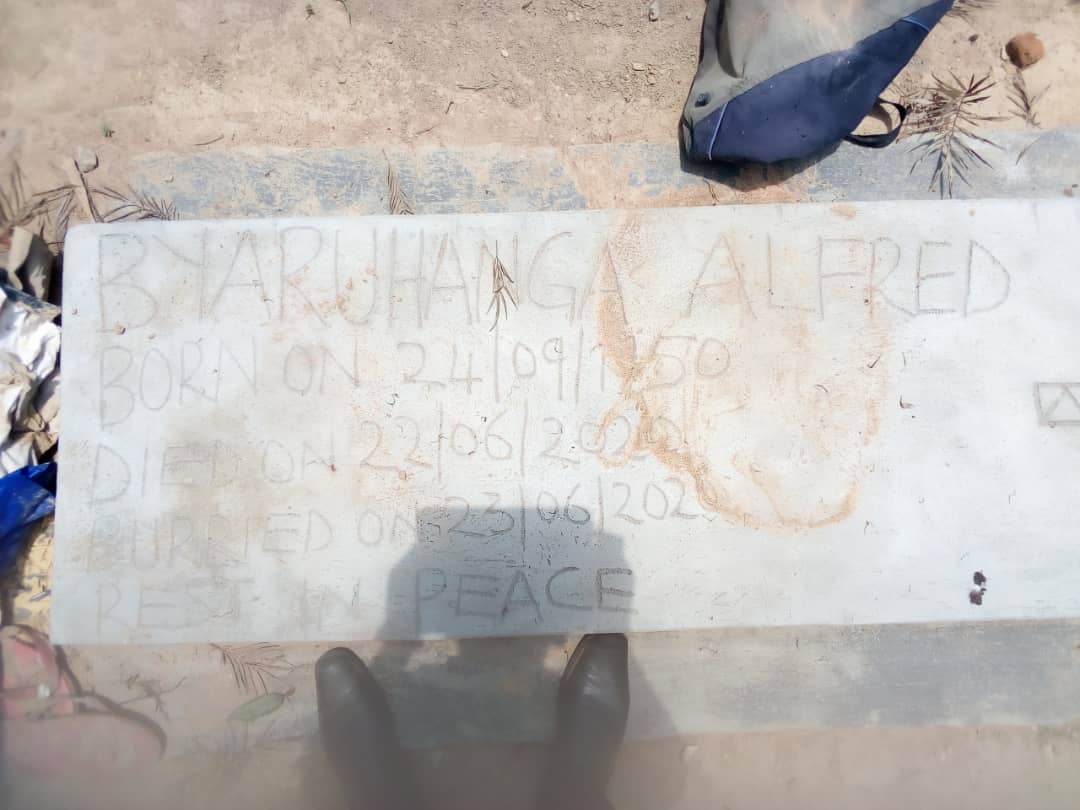 BYARUHANGA ALFRED
BORN ON 24/09/1950
DIED ON 22/06/2020
BURRIED ON 23/06/202
REST IN PEACE